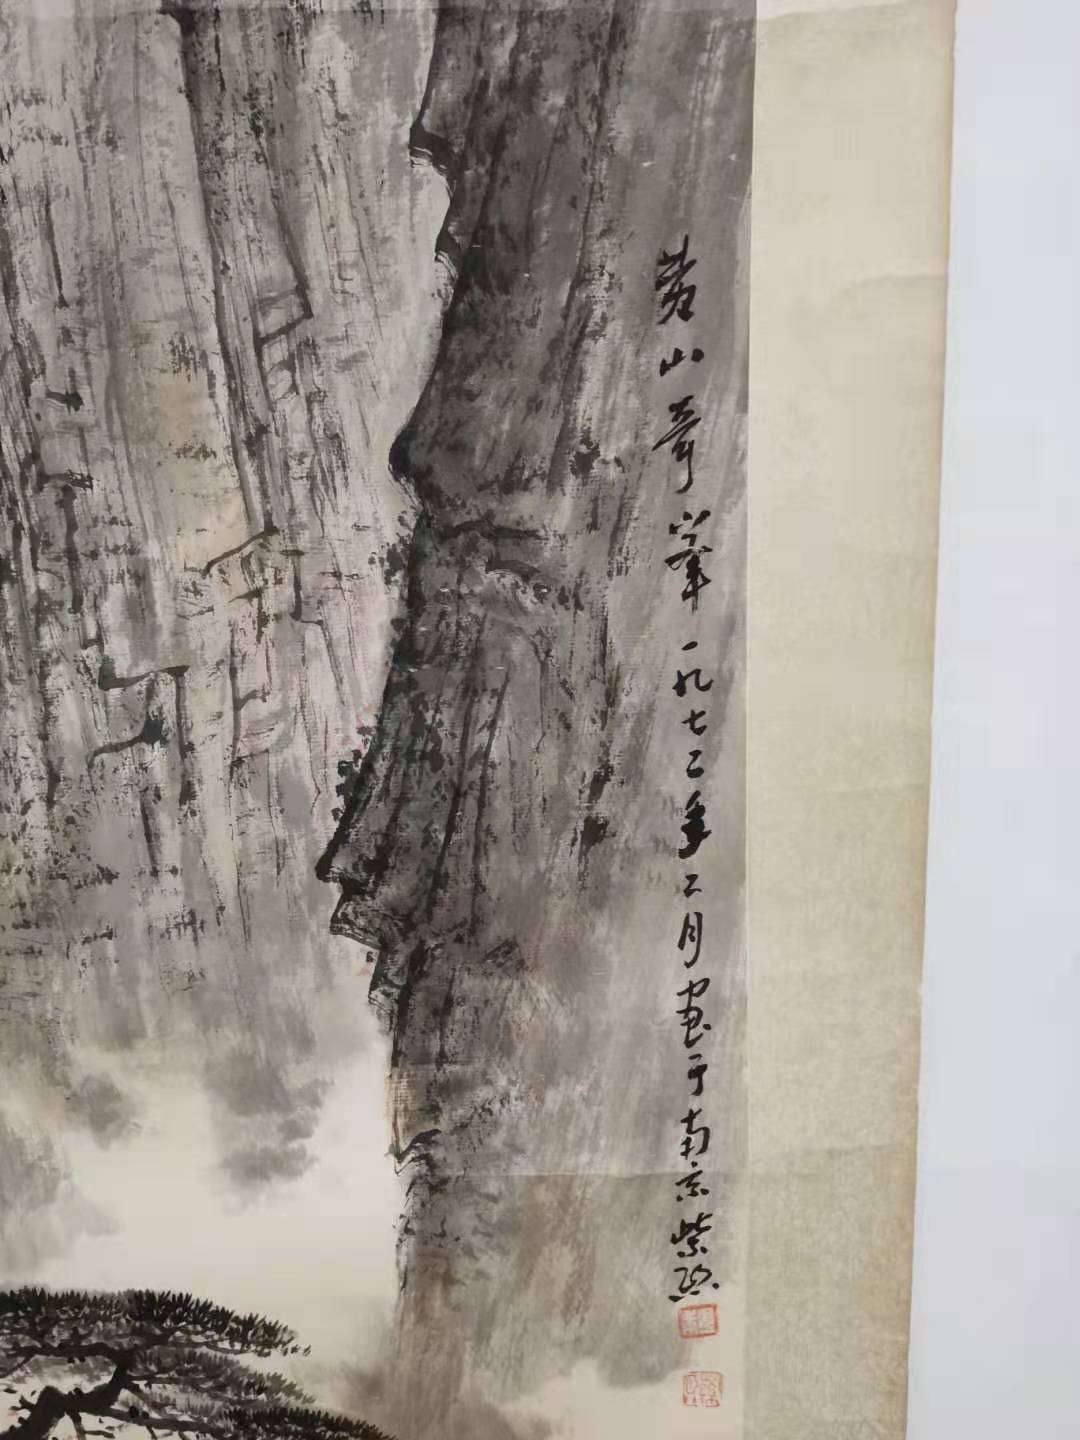 黄山奇峯一九七二年二月画于南京紫熙